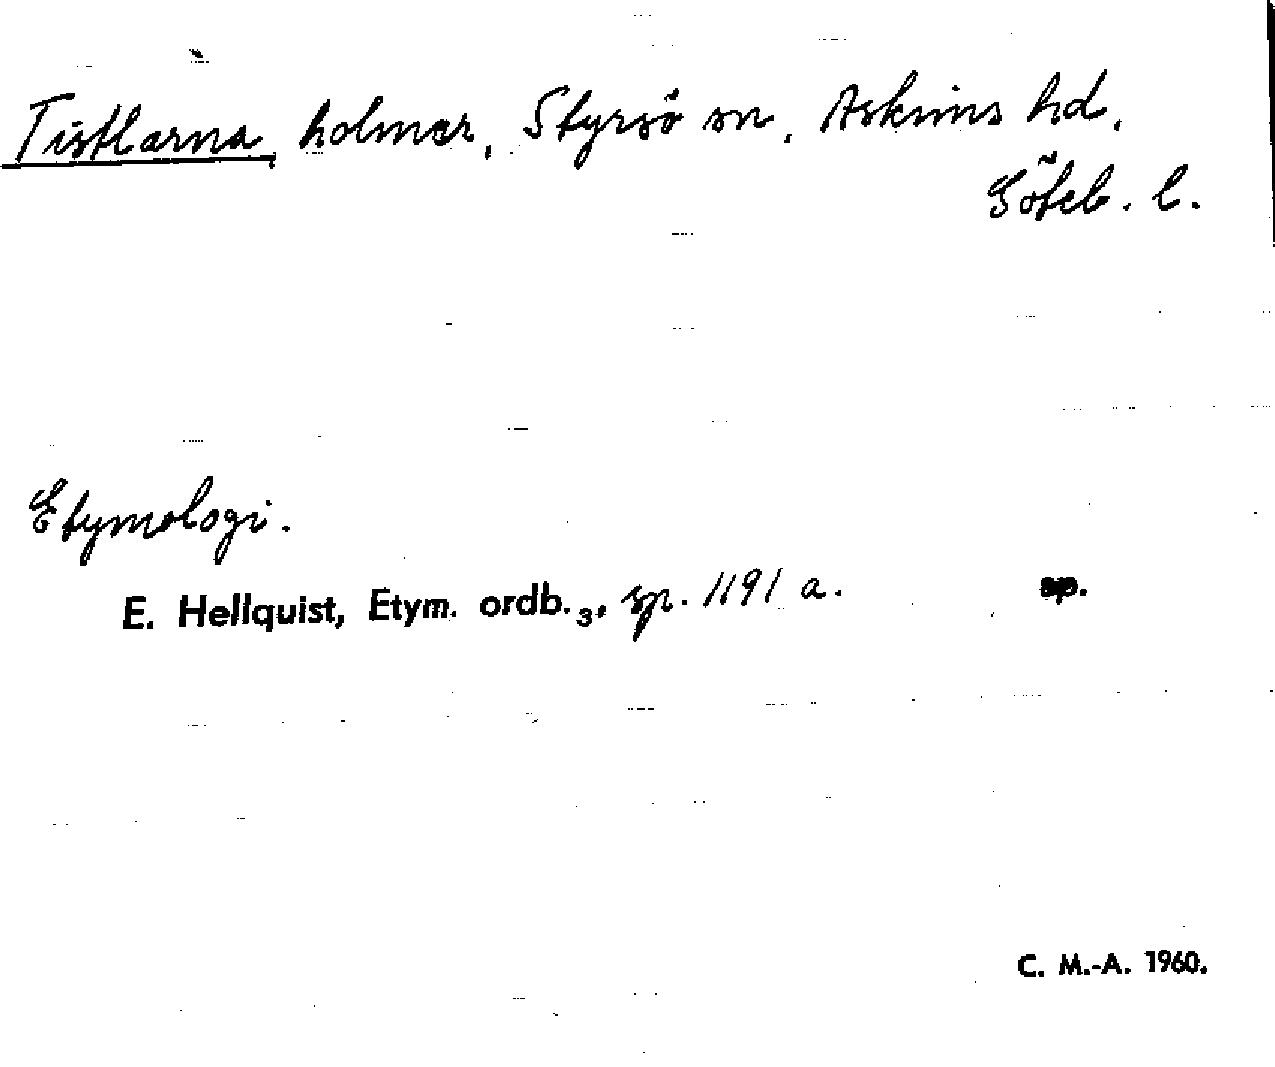 Tistlarna, holmar, Styrsö sn, Askims hd,
Göteb. l.
Etymologi.
E. Hellquist, Etym. ordb.₃, sp. 1191 a. sp.
C. M.-A. 1960.